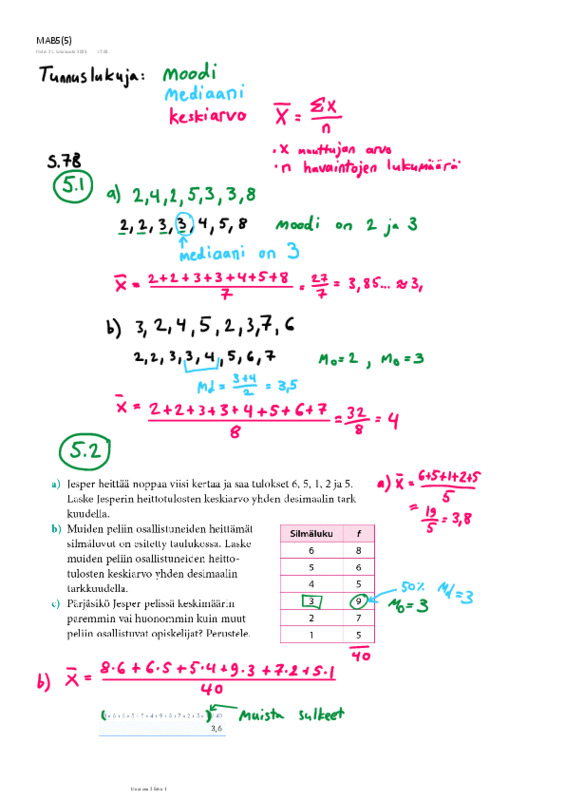 MAB5(5)
Tunnuslukuja: moodi
mediaani
keskiarvo
x̄ = Σx / n
• x muuttujan arvo
• n havaintojen lukumäärä
S.78
5.1
a) 2,4,2,5,3,3,8
2,2,3,3,4,5,8 moodi on 2 ja 3
mediaani on 3
x̄ = (2+2+3+3+4+5+8) / 7 = 27/7 = 3,85... ≈ 3,
b) 3,2,4,5,2,3,7,6
2,2,3,3,4,5,6,7 Mo=2, Mo=3
Md = (3+4)/2 = 3,5
x̄ = (2+2+3+3+4+5+6+7) / 8 = 32/8 = 4
5.2
a) Jesper heittää noppaa viisi kertaa ja saa tulokset 6, 5, 1, 2 ja 5.
Laske Jesperin heittotulosten keskiarvo yhden desimaalin tark
kuudella.
a) x̄ = (6+5+1+2+5) / 5
= 19/5 = 3,8
b) Muiden peliin osallistuneiden heittämät
silmäluvut on esitetty taulukossa. Laske
muiden peliin osallistuneiden heitto-
tulosten keskiarvo yhden desimaalin
tarkkuudella.
c) Pärjäsikö Jesper pelissä keskimäärin
paremmin vai huonommin kuin muut
peliin osallistuvat opiskelijat? Perustele.
Silmäluku f
6 8
5 6
4 5
3 9
2 7
1 5
40
50% Md=3
Mo=3
b) x̄ = (8·6+6·5+5·4+9·3+7·2+5·1) / 40
Muista sulkeet
3,6